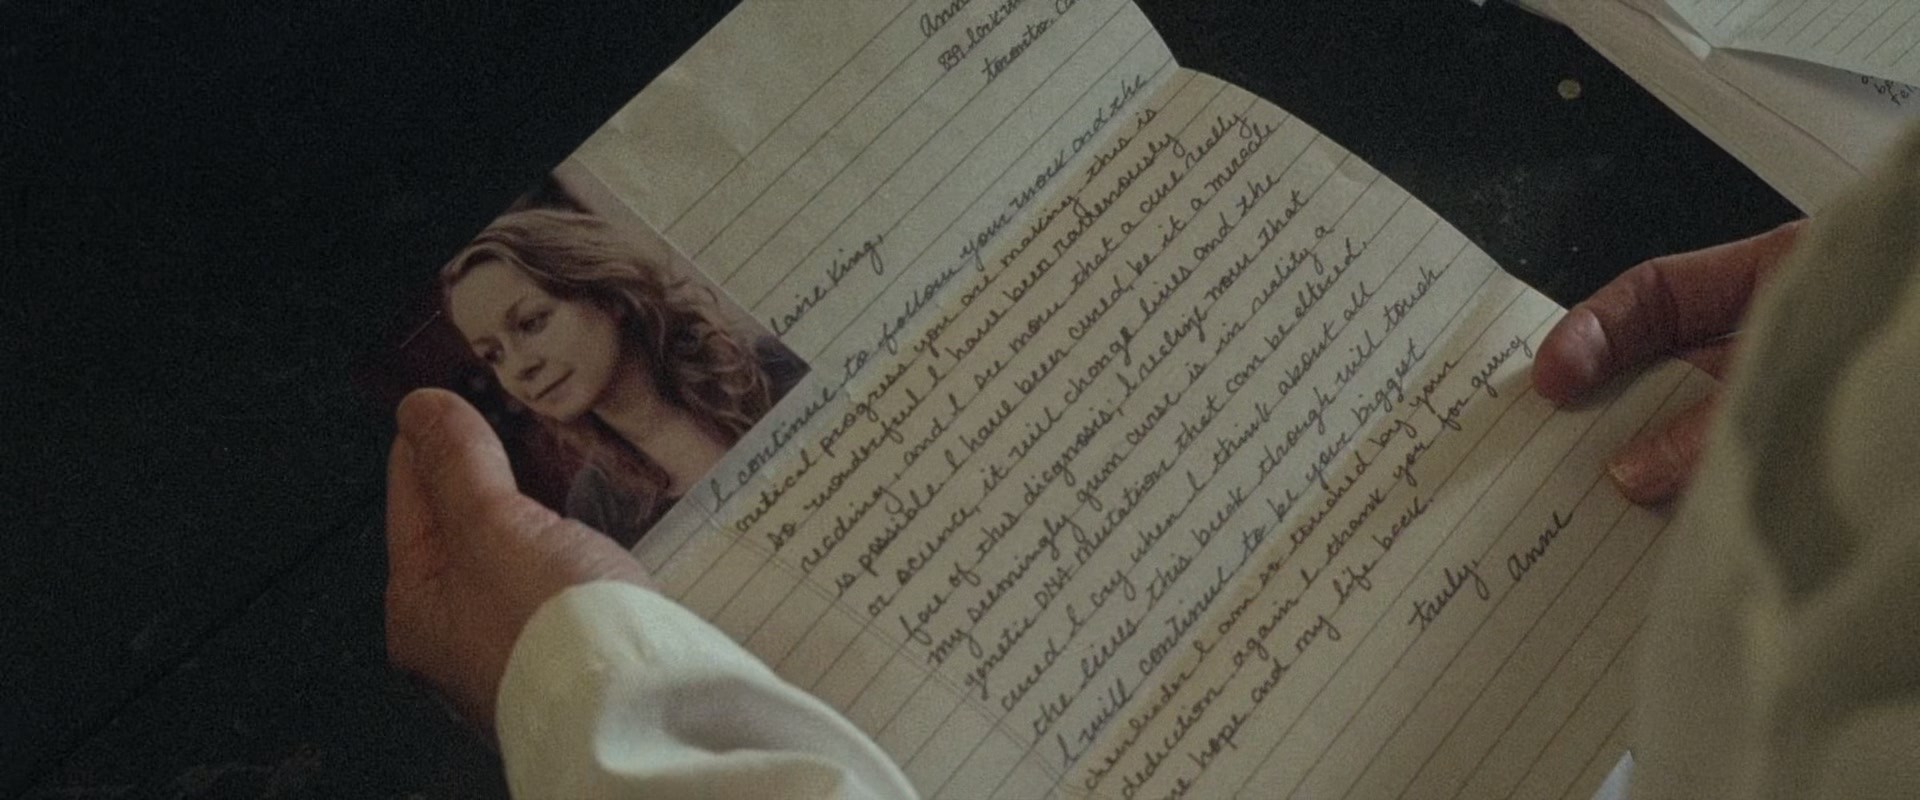 Ann
Toronto, Ca
laire King,
I continue to follow your work and the
critical progress you are making, this is
so wonderful I have been ravenously
reading, and I see more that a cure really
is possible I have been cured, be it a miracle
or science, it will change lives and the
face of this diagnosis, I realize now that
my seemingly grim curse is in reality a
genetic DNA mutation that can be altered.
cured I cry when I think about all
the lives this break through will touch.
I will continue to be your biggest
cheerleader I am so touched by your
dedication again I thank you for giving
me hope and my life back.
truly,
Anne